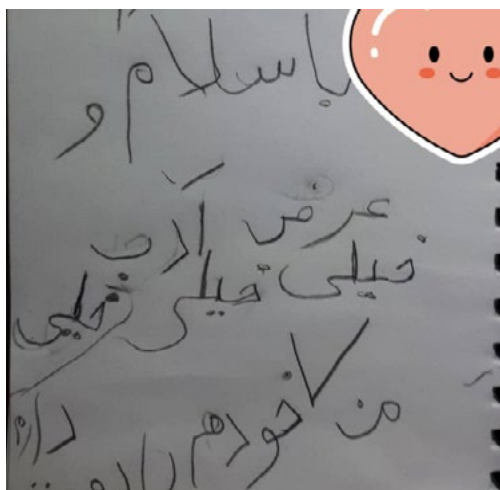 با سلام و
عرض ادب
خیلی خیلی خیلی
من خودم